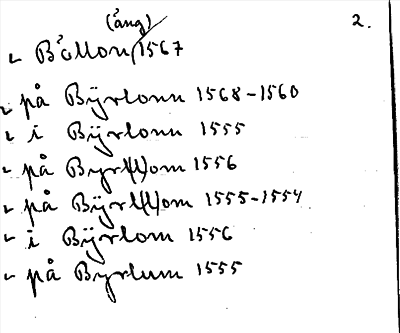 (ång) 2.
~ Bållon 1567
~ på Bÿrlonn 1568-1560
~ i Bÿrlonn 1555
~ på Byrl(l)om 1556
~ på Bÿrl(l)om 1555-1554
~ i Bÿrlom 1556
~ på Byrlum 1555